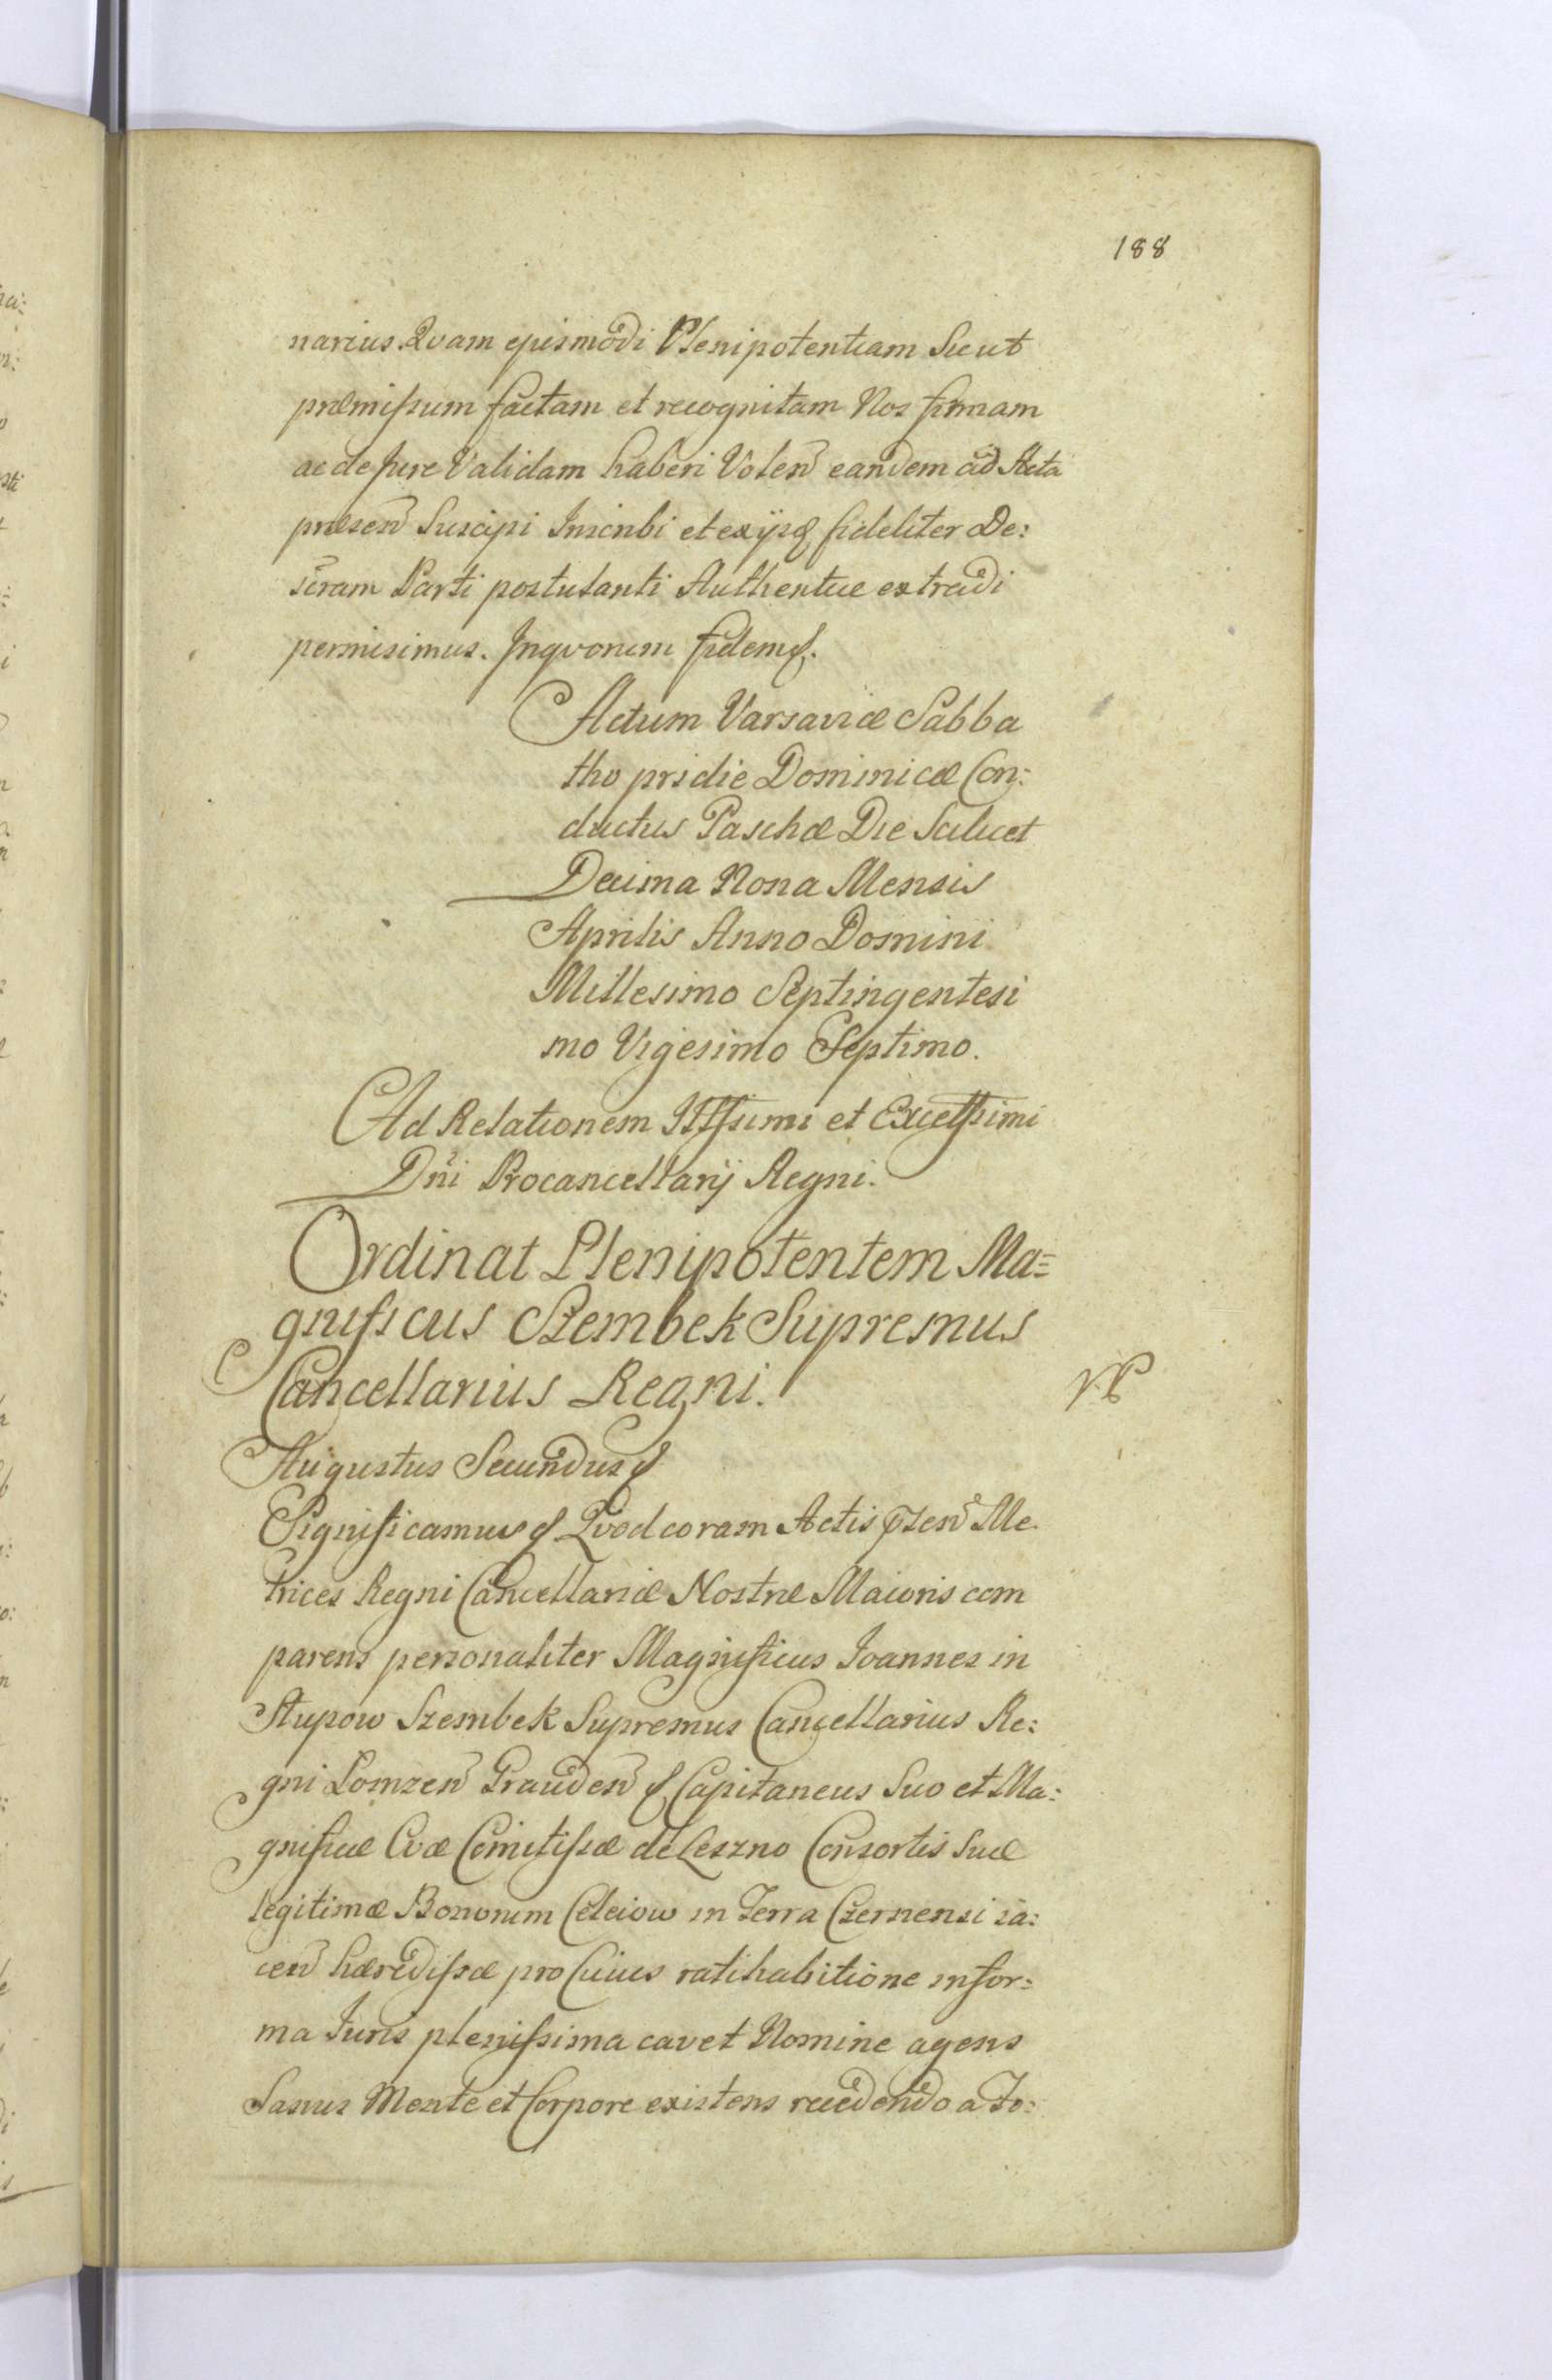 188
narius. Qvam ejusmodi Plenipotentiam Sicut
præmissum factam et recognitam Nos firmam
ac de Jure Validam haberi Volen̄ eandem ad Acta
præsen̄ Suscipi Inscribi et ex ijsq fideliter De:
scram Parti postulanti Authentice extradi
permisimus. Inqvorum fidem &.
Actum Varsaviæ Sabba
tho pridie Dominicæ Con:
ductus Paschæ Die Scilicet
Decima Nona Mensis
Aprilis Anno Domini
Millesimo Septingentesi
mo Vigesimo Septimo.
Ad Relationem Illssimi et Excellssimi
Dn̄i Procancellarij Regni.
Ordinat Plenipotentem Ma=
gnificus Szembek Supremus
Cancellarius Regni.
Augustus Secundus &
Significamus & Qvod coram Actis pr̄sen̄ Me
trices Regni Cancellariæ Nostræ Maioris com
parens personaliter Magnificus Joannes in
Słupow Szembek Supremus Cancellarius Re:
gni Lomzen̄ Grauden̄ & Capitaneus Suo et Ma:
gnificæ Evæ Comitissæ de Leszno Consortis Suæ
legitimæ Bonorum Celeiow in Terra Czernensi ia:
cen̄ hæredissæ pro Cuius ratihabitione in for:
ma Juris plenissima cavet Nomine agens
Sanus Mente et Corpore existens recedendo a Fo: